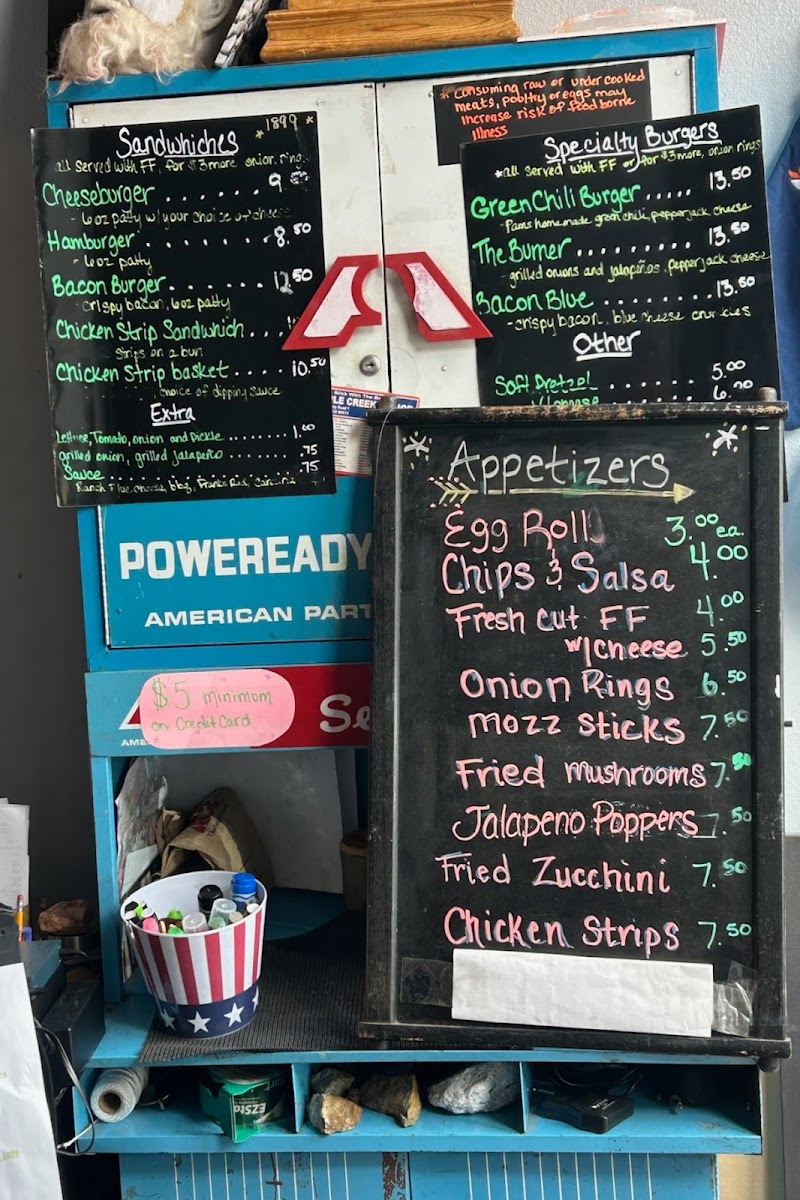 * consuming raw or under cooked
meats, poultry or eggs may
increase risk of food borne
illness
Sandwhiches
* 1899 *
all served with FF, for $3 more onion rings
Cheeseburger ....... 9
- 6 oz patty w/ your choice of cheese
Hamburger ....... 8.50
- 6 oz patty
Bacon Burger ...... 12.50
- crispy bacon, 6 oz patty
Chicken Strip Sandwhich ...
strips on a bun
Chicken Strip basket .... 10.50
choice of dipping sauce
Extra
Lettuce, Tomato, onion and Pickle ........ 1.00
grilled onion, grilled jalapeño ........ .75
Sauce ........ .75
Ranch
Specialty Burgers
*all served with FF or for $3 more, onion rings
Green Chili Burger ..... 13.50
- Pams homemade green chili, pepperjack cheese
The Burner ......... 13.50
- grilled onions and jalapeños, pepper jack cheese
Bacon Blue ........ 13.50
- crispy bacon, blue cheese crumbles
Other
Soft Pretzel ...... 5.00
w/ cheese
POWEREADY
AMERICAN PART
$5 minimum
on Credit Card
Se
Appetizers
Egg Roll 3.00 ea.
Chips & Salsa 4.00
Fresh cut FF 4.00
w/cheese 5.50
Onion Rings 6.50
Mozz Sticks 7.50
Fried mushrooms 7.50
Jalapeno Poppers 7.50
Fried Zucchini 7.50
Chicken Strips 7.50
EZSta